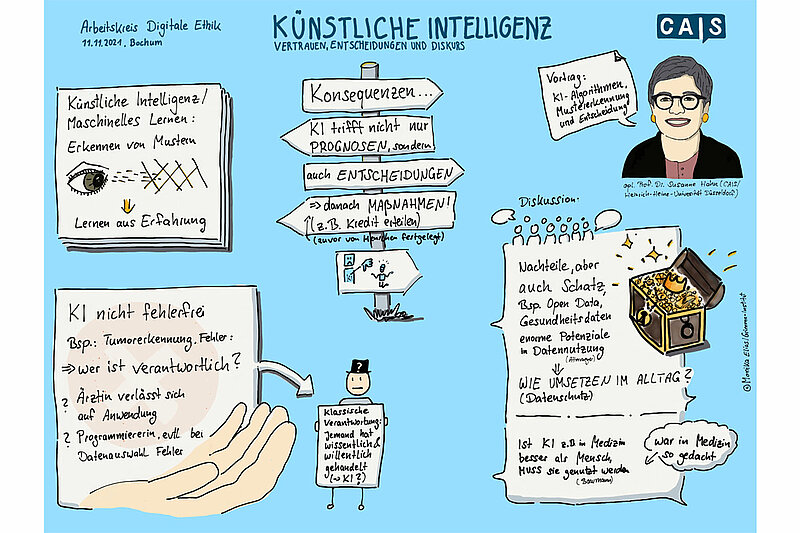 Arbeitskreis Digitale Ethik
11.11.2021, Bochum
KÜNSTLICHE INTELLIGENZ
VERTRAUEN, ENTSCHEIDUNGEN UND DISKURS
CAIS
Künstliche Intelligenz/
Maschinelles Lernen:
Erkennen von Mustern
Lernen aus Erfahrung
Konsequenzen...
KI trifft nicht nur
PROGNOSEN, sondern
auch ENTSCHEIDUNGEN
⇒ danach MAẞNAHMEN!
(z.B. Kredit erteilen)
(zuvor von Menschen festgelegt)
Vortrag:
KI-Algorithmen,
Mustererkennung
und Entscheidung
apl. Prof. Dr. Susanne Hahn (CAIS/
Heinrich-Heine-Universität Düsseldorf)
KI nicht fehlerfrei
Bsp.: Tumorerkennung. Fehler:
⇒ wer ist verantwortlich?
? Ärztin verlässt sich
auf Anwendung
? Programmiererin, evtl. bei
Datenauswahl Fehler
?
Klassische
Verantwortung:
Jemand hat
wissentlich &
willentlich
gehandelt
(~ KI?)
Diskussion:
Nachteile, aber
auch Schatz,
Bsp. Open Data,
Gesundheitsdaten
enorme Potenziale
in Datennutzung
WIE UMSETZEN IM ALLTAG?
(Datenschutz)
Ist KI z.B. in Medizin
besser als Mensch,
muss sie genutzt werden
war in Medizin
so gedacht
©Monika Elias/Grimme-Institut